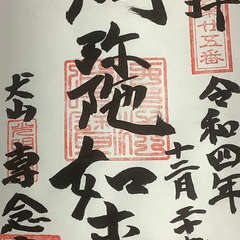 拝
廿五番
令和四年
十二月二十
阿弥陀如来
犬山
専念